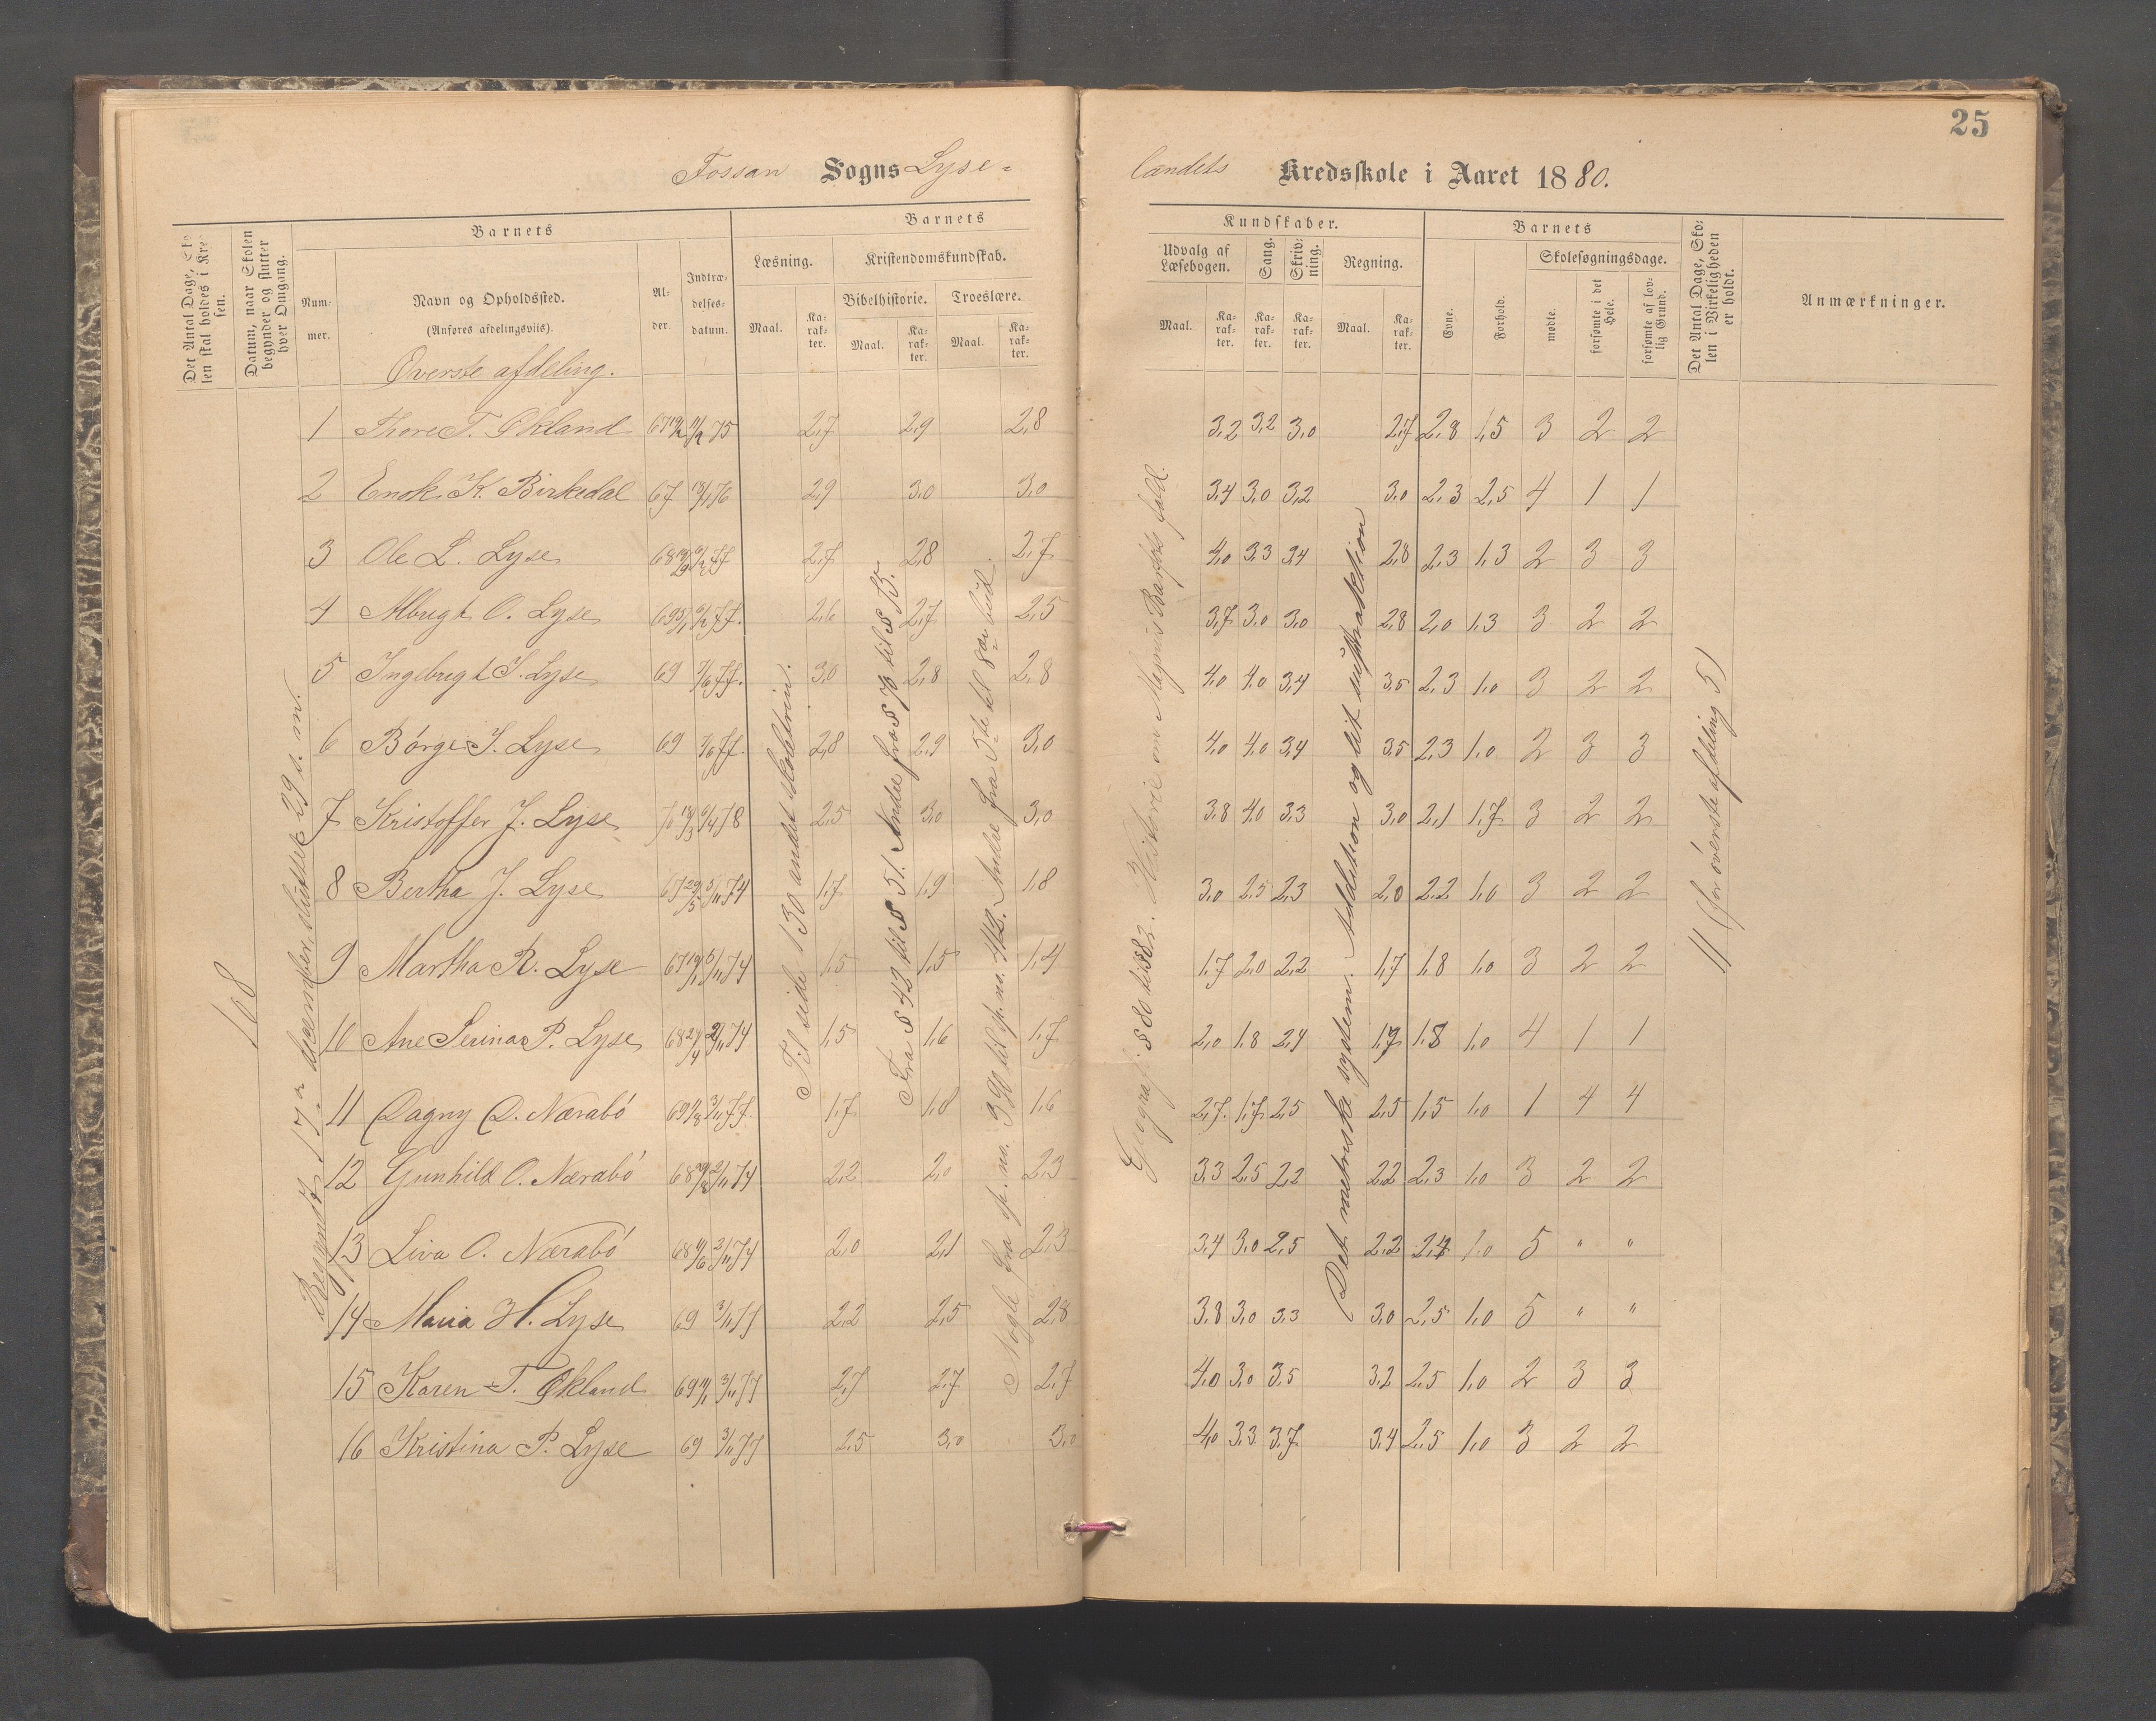 25
Fossan Sogns Lyse-
landets Kredsskole i Aaret 1880.
Det Antal Dage, Skolen skal holdes i Kredsen.
Datum, naar Skolen begynder og slutter hver Omgang.
Barnets
Nummer.
Navn og Opholdssted.
(Anføres afdelingsviis).
Alder.
Indtrædelses-datum.
Barnets
Læsning.
Maal.
Karakter.
Kristendomskundskab.
Bibelhistorie.
Maal.
Karakter.
Troeslære.
Maal.
Karakter.
Kundskaber.
Udvalg af Læsebogen.
Maal.
Karakter.
Sang.
Karakter.
Skrivning.
Karakter.
Regning.
Maal.
Karakter.
Barnets
Evne.
Forhold.
Skolesøgningsdage.
mødte.
forsømte i det Hele.
forsømte af lovlig Grund.
Det Antal Dage, Skolen i Virkeligheden er holdt.
Anmærkninger.
Øverste afdeling.
1 Thore T. Økland 75 2,7 2,9 2,8 3,2 3,2 3,0 2,7 2,8 1,5 3 2 2
2 Enok K. Birkedal 67 18/1 76 2,9 3,0 3,0 3,4 3,0 3,2 3,0 2,3 2,5 4 1 1
3 Ole L. Lyse 68 77 2,7 2,8 2,7 4,0 3,3 3,4 2,8 2,3 1,3 2 3 3
4 Albregt O. Lyse 69 77. 2,6 2,7 2,5 3,7 3,0 3,0 2,8 2,0 1,3 3 2 2
5 Ingebregt I. Lyse 69 77. 3,0 2,8 2,8 4,0 4,0 3,4 3,5 2,3 1,0 3 2 2
6 Børge I. Lyse 69 77. 2,8 2,9 3,0 4,0 4,0 3,4 3,5 2,3 1,0 2 3 3
7 Kristoffer J. Lyse 70 78 2,5 3,0 3,0 3,8 4,0 3,3 3,0 2,1 1,7 3 2 2
8 Bertha J. Lyse 67 29/5 5/11 74 1,7 1,9 1,8 3,0 2,5 2,3 2,0 2,2 1,0 3 2 2
9 Martha R. Lyse 67 19/1 5/11 74 1,5 1,5 1,4 1,7 2,0 2,2 1,7 1,8 1,0 3 2 2
10 Ane Serina P. Lyse 68 2/11 74 1,5 1,6 1,7 2,0 1,8 2,4 1,7 1,8 1,0 4 1 1
11 Dagny D. Nærabø 69 3/11 77. 1,7 1,8 1,6 2,7. 1,7. 2,5 2,5 1,5 1,0 1 4 4
12 Gunhild O. Nærabø 68 2/11 74 2,2 2,0 2,3 3,3 2,5 2,2 2,2 2,3 1,0 3 2 2
13 Liva O. Nærabø 68 2/11 74 2,0 2,1 2,3 3,4 3,0 2,5 2,2 2,4 1,0 5 " "
14 Maria H. Lyse 69 3/11 77 2,2 2,5 2,8 3,8 3,0 3,3 3,0 2,5 1,0 5 " "
15 Karen T. Økland 69 3/11 77 2,7 2,7 2,7 4,0 3,0 3,5 3,2 2,5 1,0 2 3 3
16 Kristina P. Lyse 69 3/11 77 2,5 3,0 3,0 4,0 3,3 3,7 3,4 2,5 1,0 3 2 2
168
Begyndt 17de december, sluttet 29 s. m.
Til side 130 andet skoletrin.
Fra § 43 til § 51. Andre fra § 76 til § 85.
Nogle fra sp. no. 390 til sp. no. 412. Andre fra 5te til 8de bud.
Geografi § 80 til 82. Historie om Magnus Barfots fald.
Det metriske system. Addition og lit subtraktion
11 (for øverste afdeling 5)